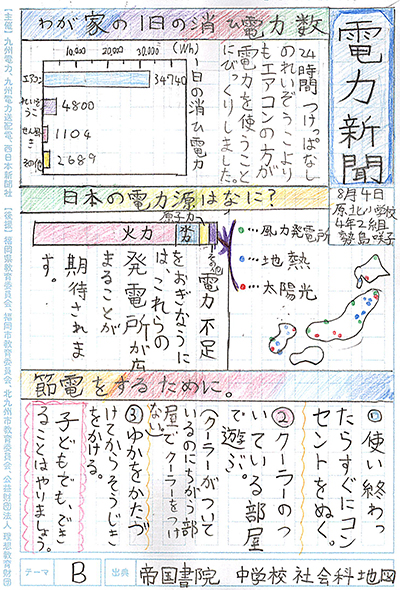 電力新聞
8月4日
原北小学校
4年2組
勢島咲子
わが家の1日の消ひ電力数
10,000 20,000 30,000 (Wh)
エアコン 34740
れいぞうこ 4800
せんぷうき 1104
その他 2689
1日の消ひ電力
24時間つけっぱなし
のれいぞうこより
もエアコンの方が
電力を使うこと
にびっくりしました。
日本の電力源はなに?
原子力
火力
電力不足
をおぎなうに
は、これらの
発電所が広
まることが
期待されま
す。
…風力発電所
…地熱
…太陽光
節電をするために。
①使い終わっ
たらすぐにコン
セントをぬく。
②クーラーのつ
いている部屋
で遊ぶ。
(クーラーがついて
いるのにちがう部
屋でクーラーをつけ
ない)
③ゆかをかたづ
けてからそうじき
をかける。
子どもでも、でき
ることはやりましょう。
テーマ B 出典 帝国書院 中学校社会科地図
【主催】九州電力、九州電力送配電、西日本新聞社 【後援】福岡県教育委員会、福岡市教育委員会、北九州市教育委員会、公益財団法人 理想教育財団